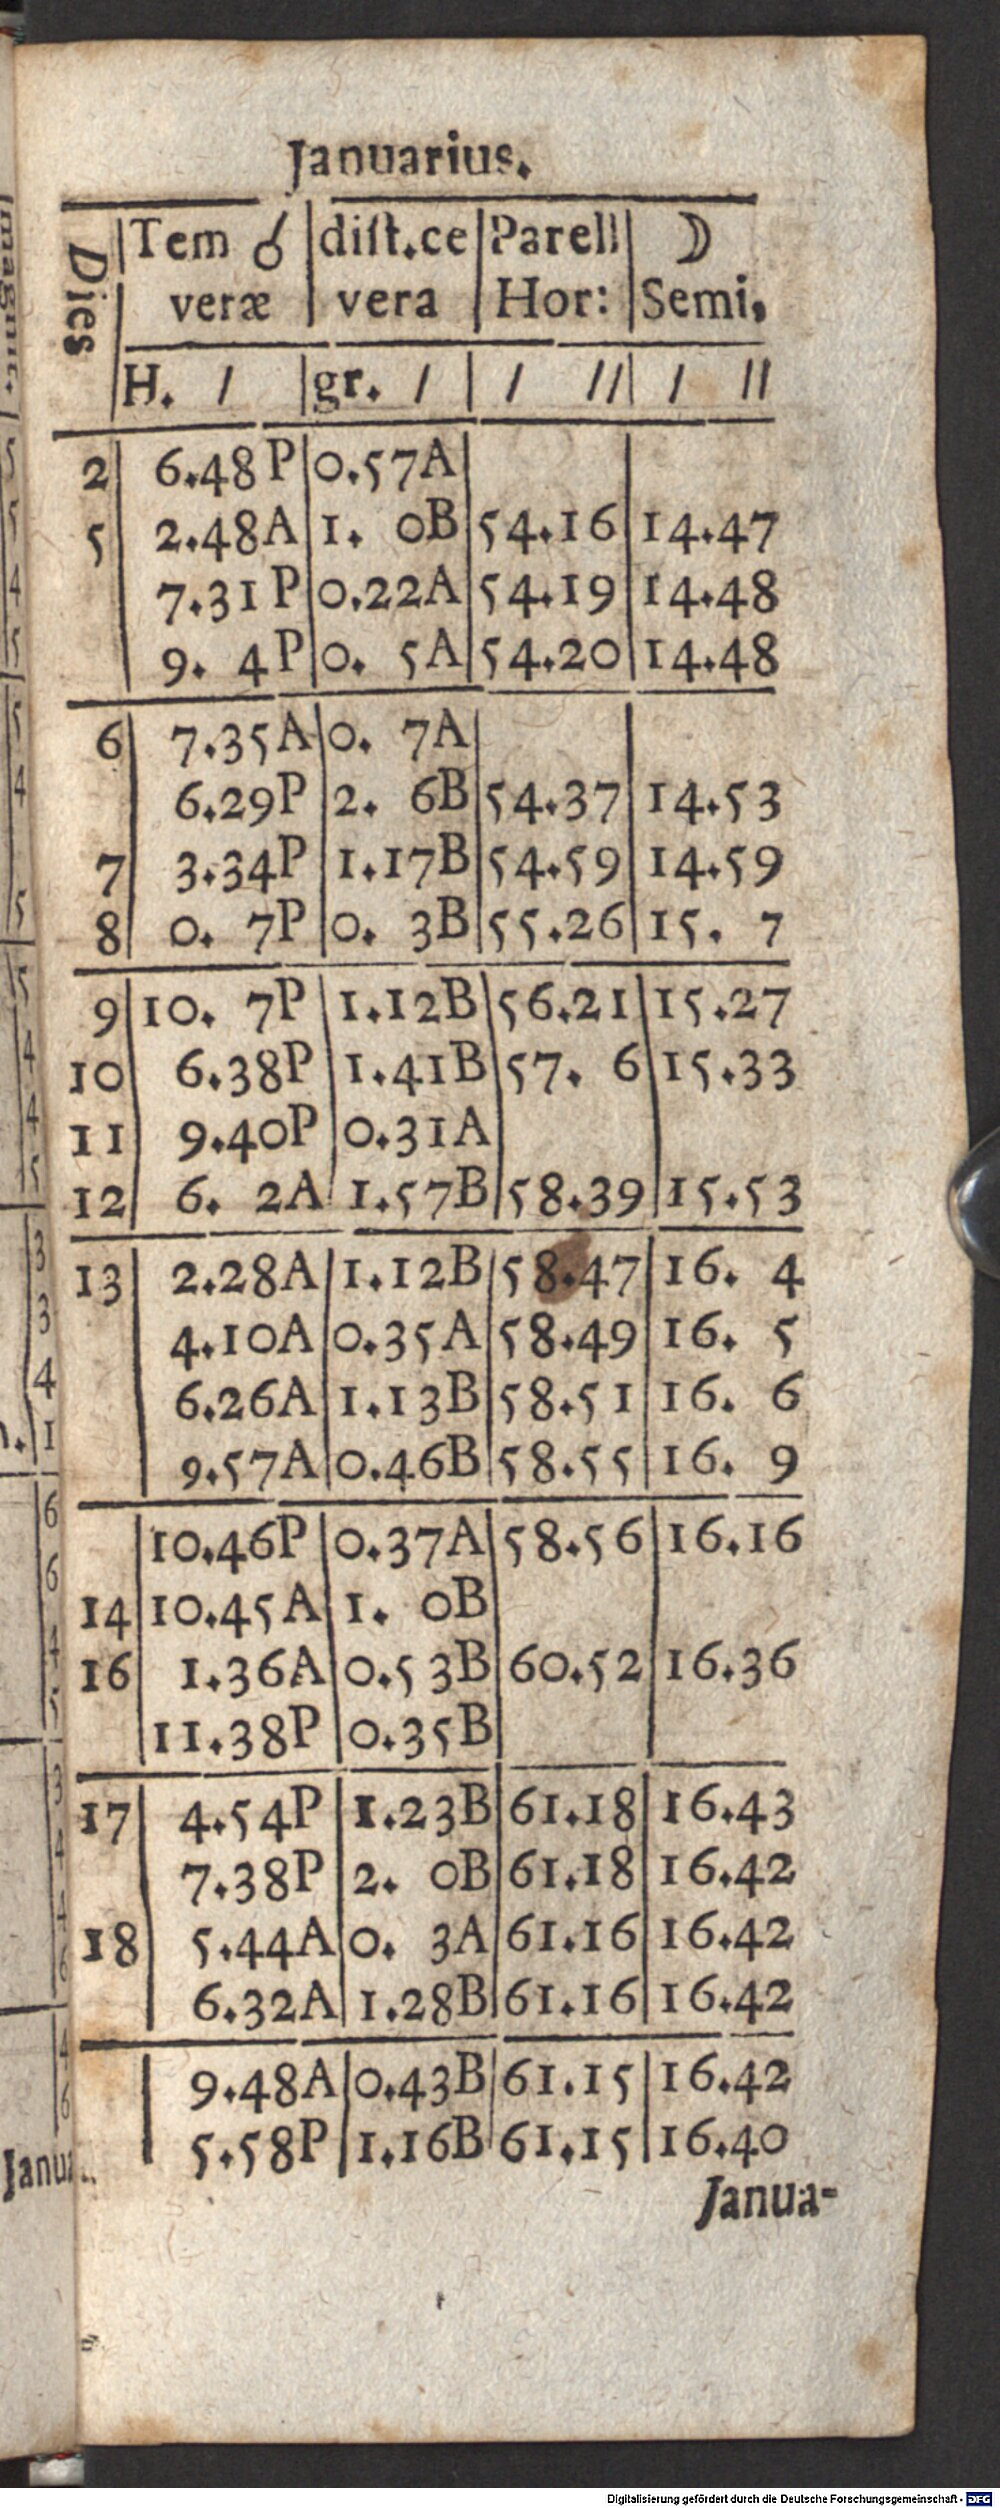 Januarius.
Dies | Tem ☌ | diſt.ce | Parell | ☽
veræ | vera | Hor: | Semi,
H. / | gr. / | / // | / //
2 | 6.48P | 0.57A
5 | 2.48A | 1. 0B | 54.16 | 14.47
7.31P | 0.22A | 54.19 | 14.48
9. 4P | 0. 5A | 54.20 | 14.48
6 | 7.35A | 0. 7A
6.29P | 2. 6B | 54.37 | 14.53
7 | 3.34P | 1.17B | 54.59 | 14.59
8 | 0. 7P | 0. 3B | 55.26 | 15. 7
9 | 10. 7P | 1.12B | 56.21 | 15.27
10 | 6.38P | 1.41B | 57. 6 | 15.33
11 | 9.40P | 0.31A
12 | 6. 2A | 1.57B | 58.39 | 15.53
13 | 2.28A | 1.12B | 58.47 | 16. 4
4.10A | 0.35A | 58.49 | 16. 5
6.26A | 1.13B | 58.51 | 16. 6
9.57A | 0.46B | 58.55 | 16. 9
10.46P | 0.37A | 58.56 | 16.16
14 | 10.45A | 1. 0B
16 | 1.36A | 0.53B | 60.52 | 16.36
11.38P | 0.35B
17 | 4.54P | 1.23B | 61.18 | 16.43
7.38P | 2. 0B | 61.18 | 16.42
18 | 5.44A | 0. 3A | 61.16 | 16.42
6.32A | 1.28B | 61.16 | 16.42
9.48A | 0.43B | 61.15 | 16.42
5.58P | 1.16B | 61.15 | 16.40
Janua-
Digitalisierung gefördert durch die Deutsche Forschungsgemeinschaft - DFG